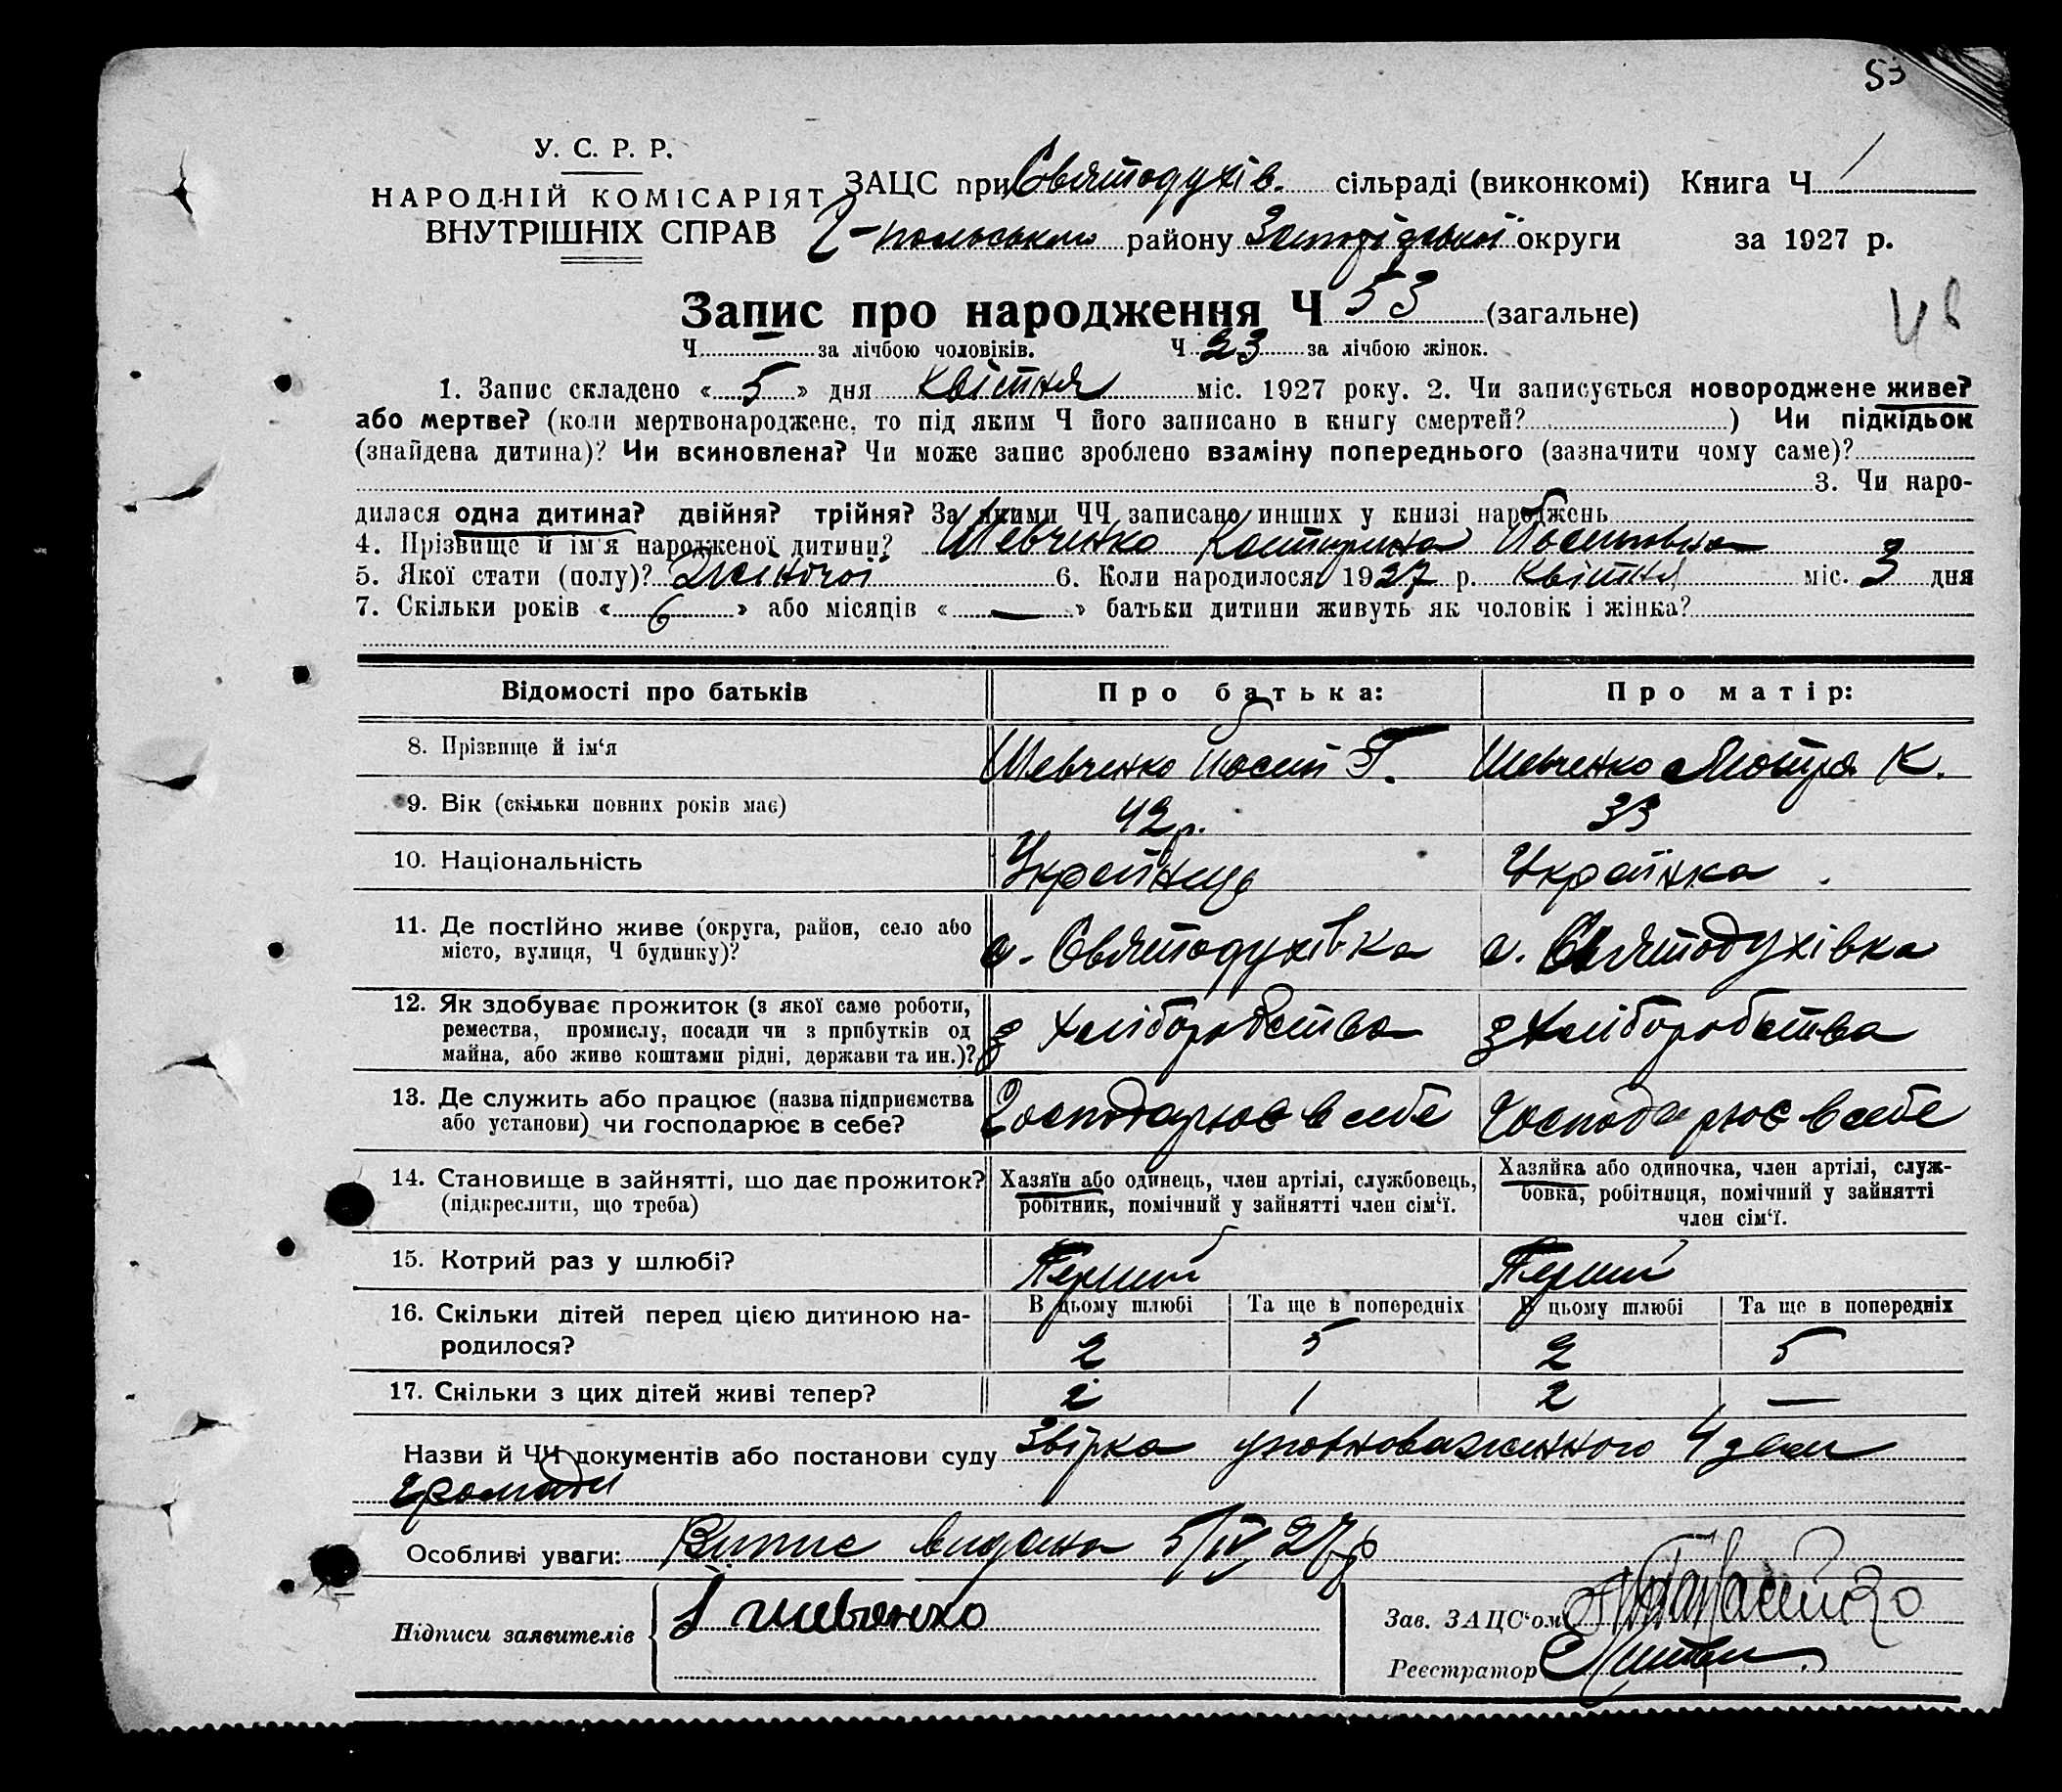 53
У. С. Р. Р.
НАРОДНІЙ КОМІСАРІЯТ
ВНУТРІШНІХ СПРАВ
ЗАЦС при Святодухів. сільраді (виконкомі) Книга Ч 1
району Запорізької округи за 1927 р.
Запис про народження Ч 53 (загальне)
Ч — за лічбою чоловіків. Ч 23 за лічбою жінок.
1. Запис складено « 5 » дня квітня міс. 1927 року. 2. Чи записується новороджене живе?
або мертве? (коли мертвонароджене, то під яким Ч його записано в книгу смертей? ) Чи підкідьок
(знайдена дитина)? Чи всиновлена? Чи може запис зроблено взаміну попереднього (зазначити чому саме)?
3. Чи наро-
дилася одна дитина? двійня? трійня? За якими ЧЧ записано инших у книзі народжень
4. Прізвище й ім'я народженої дитини? Шевченко Катирина Йосиповна
5. Якої стати (полу)? Жіночої 6. Коли народилося 1927 р. квітня міс. 3 дня
7. Скільки років « 6 » або місяців « — » батьки дитини живуть як чоловік і жінка?
Відомості про батьків Про батька: Про матір:
8. Прізвище й ім‘я Шевченко Йосип Г. Шевченко Мотря К.
9. Вік (скільки повних років має) 42 р. 33
10. Національність Українець Українка
11. Де постійно живе (округа, район, село або
місто, вулиця, Ч будинку)? с. Святодухівка с. Святодухівка
12. Як здобуває прожиток (з якої саме роботи,
ремества, промислу, посади чи з прибутків од
майна, або живе коштами рідні, держави та ин.)? з хліборобства з хліборобства
13. Де служить або працює (назва підприємства
або установи) чи господарює в себе? Господарює в себе Господарює в себе
14. Становище в зайнятті, що дає прожиток?
(підкреслити, що треба)
Хазяїн або одинець, член артілі, службовець,
робітник, помічний у зайнятті член сім‘ї.
Хазяйка або одиночка, член артілі, служ-
бовка, робітниця, помічний у зайнятті
член сім‘ї.
15. Котрий раз у шлюбі? Перший Перший
16. Скільки дітей перед цією дитиною на-
родилося?
В цьому шлюбі Та ще в попередніх В цьому шлюбі Та ще в попередніх
2 5 2 5
17. Скільки з цих дітей живі тепер? 2 1 2 —
Назви й ЧЧ документів або постанови суду Звірка уповноваженного 4
громади
Особливі уваги: Випис видана 5/IV 27 р
Підписи заявителів Шевченко
Зав. ЗАЦС‘ом
Реєстратор